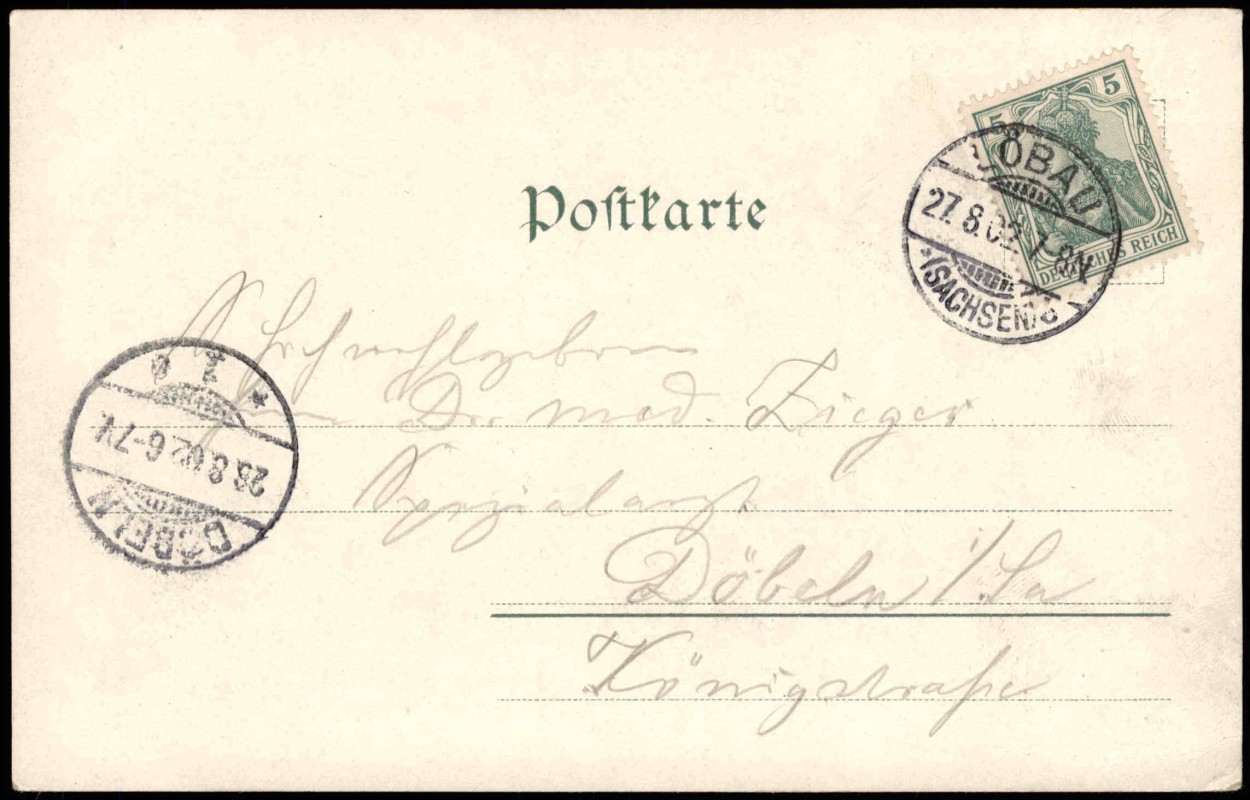 5 5
DEUTSCHES REICH
LÖBAU
27.8.02. 7-8N.
(SACHSEN)
Postkarte
Hochwohlgeboren
Dr. med. Zieger
Spezialarzt
Döbeln i/Sa
Königstraße
DÖBELN
28.8.02 6-7V.
* 1